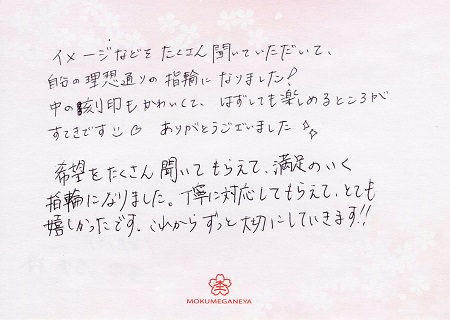 イメージなどをたくさん聞いていただいて、
自分の理想通りの指輪になりました!
中の刻印もかわいくて、はずしても楽しめるところが
すてきです☺♡ ありがとうございました☆
希望をたくさん聞いてもらえて、満足のいく
指輪になりました。丁寧に対応してもらえて、とても
嬉しかったです。これからずっと大切にしていきます!!
MOKUMEGANEYA